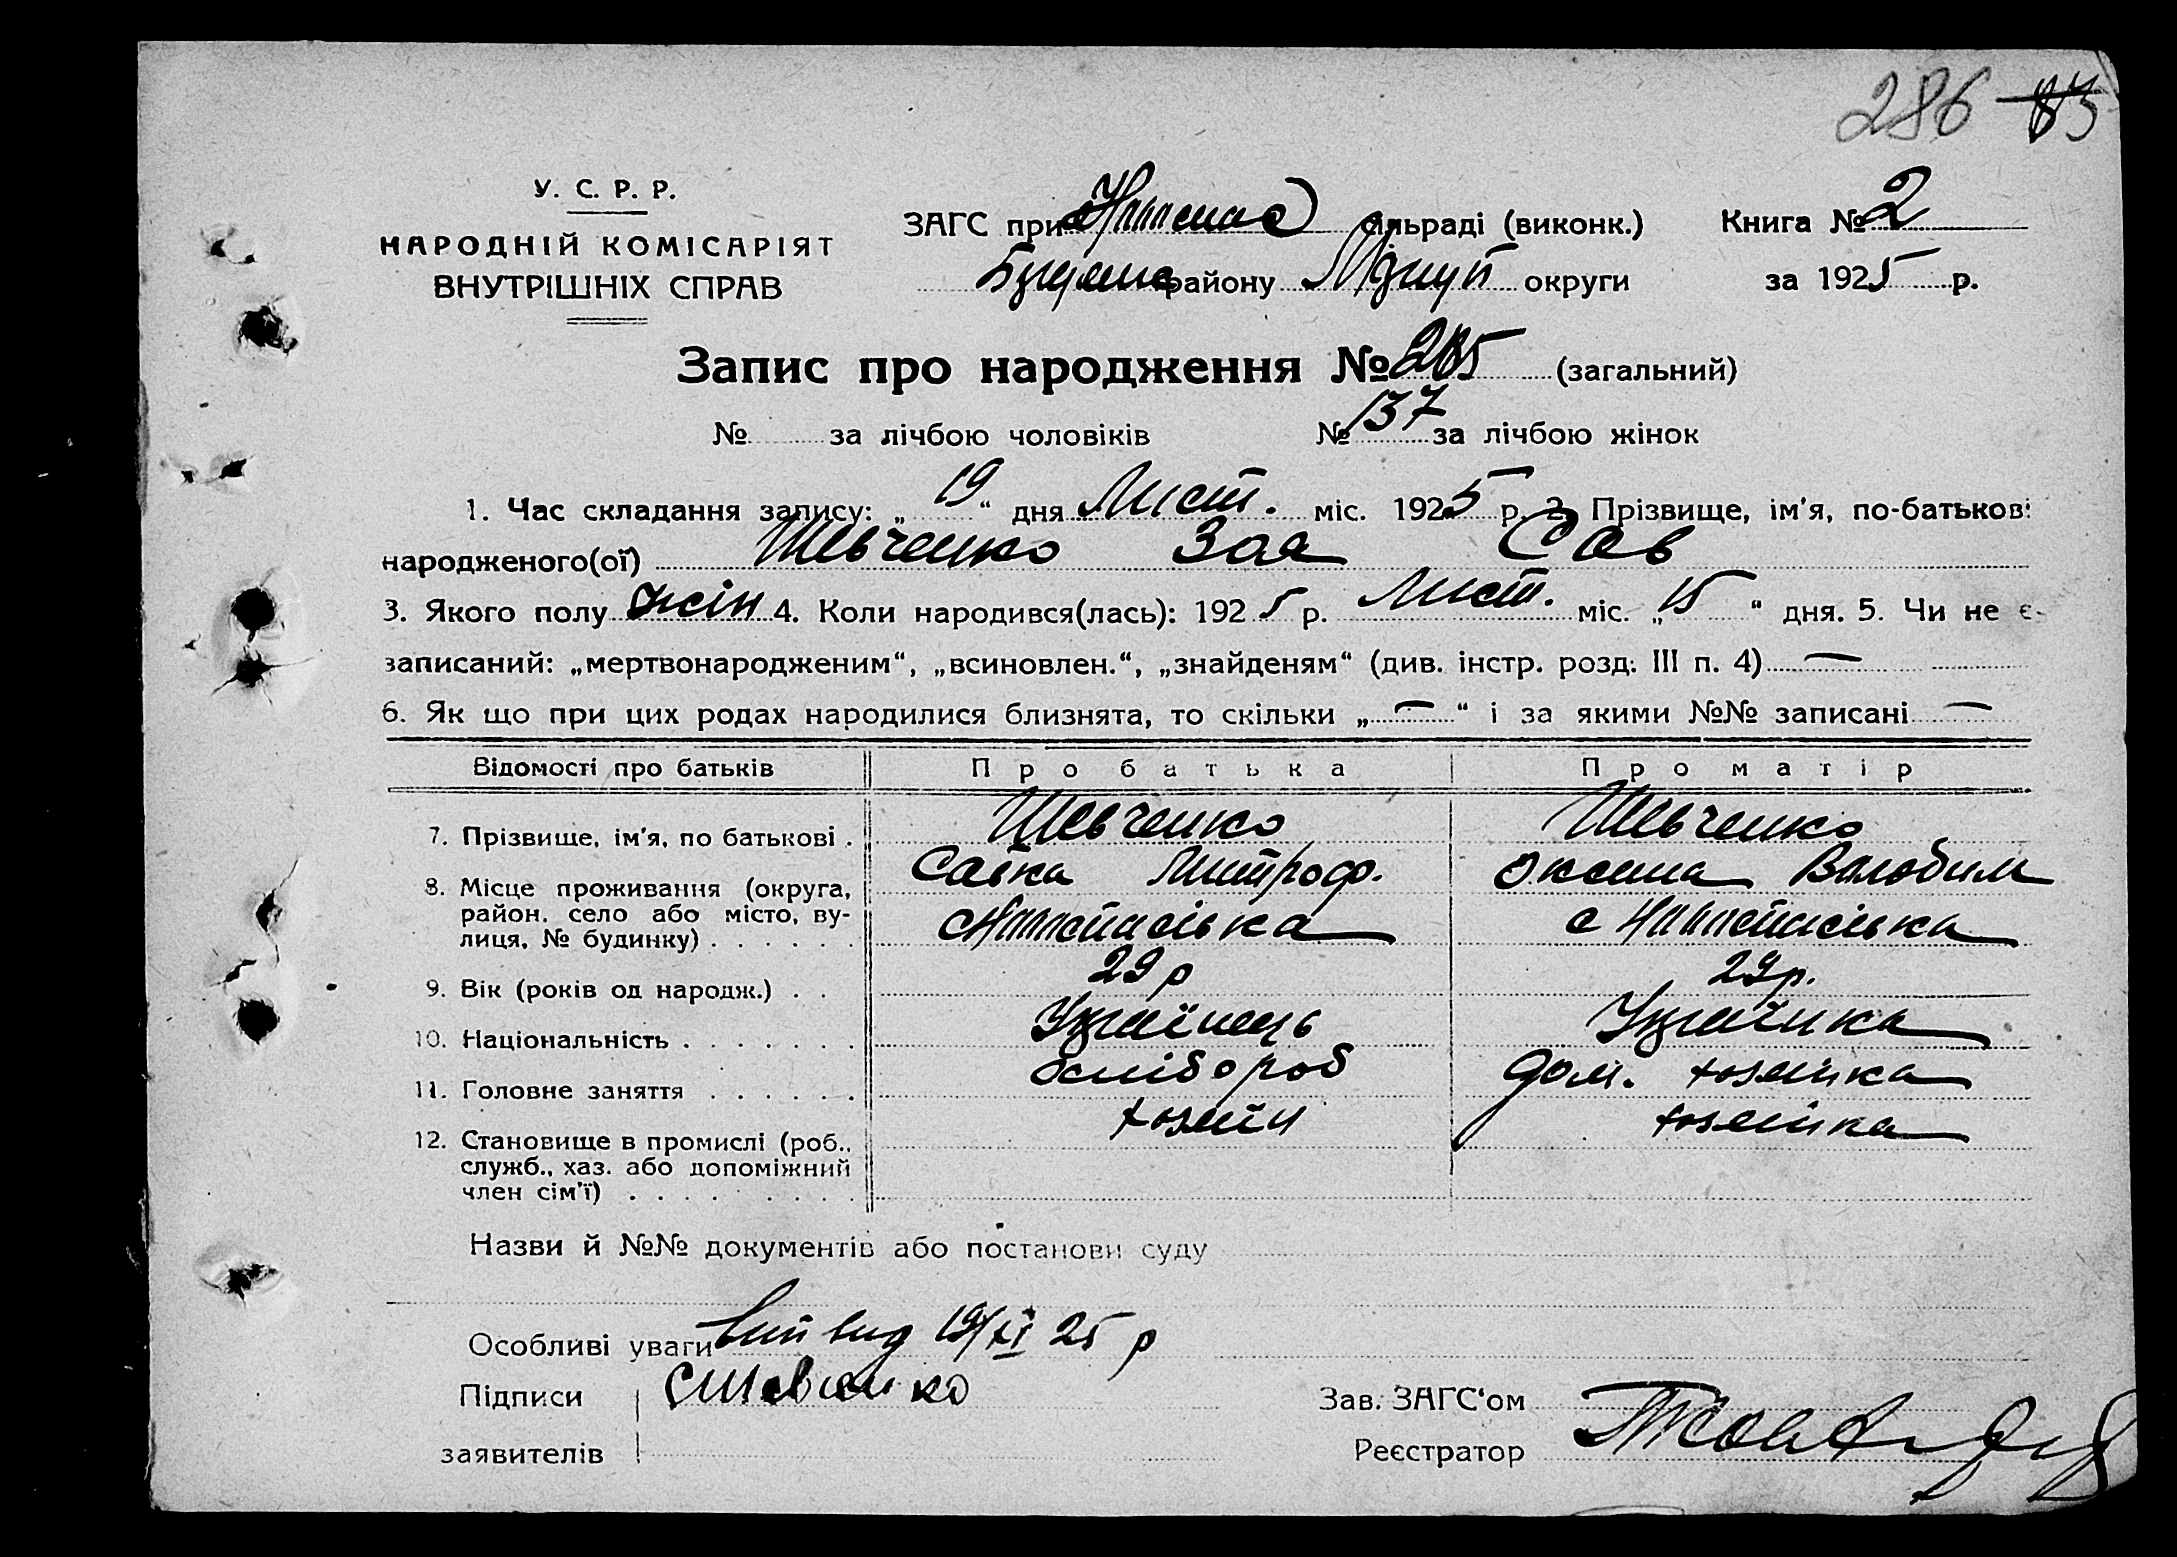 286 83
У. С. Р. Р.
НАРОДНІЙ КОМІСАРІЯТ
ВНУТРІШНІХ СПРАВ
ЗАГС при сільраді (виконк.) Книга № 2
району округи за 1925 р.
Запис про народження № 285 (загальний)
№ за лічбою чоловіків № 137 за лічбою жінок
1. Час складання запису: „19“ дня Лист. міс. 1925 р. 2. Прізвище, ім'я, по-батькові
народженого(ої) Шевченко Зоя Сав
3. Якого полу жін 4. Коли народився(лась): 1925 р. Лист. міс. „15“ дня. 5. Чи не є
записаний: „мертвонародженим“, „всиновлен.“, „знайденям“ (див. інстр. розд: III п. 4) —
6. Як що при цих родах народилися близнята, то скільки „—“ і за якими №№ записані —
Відомості про батьків Про батька Про матір
7. Прізвище, ім'я, по батькові . Шевченко Шевченко
Савка Митроф. Оксана
8. Місце проживання (округа,
район, село або місто, ву-
лиця, № будинку)
9. Вік (років од народж.) . . 29 р 29 р.
10. Національність Українець Українка
11. Головне заняття хлібороб дом. хозяйка
12. Становище в промислі (роб., хозяїн хозяйка
служб., хаз. або допоміжний
член сім'ї)
Назви й №№ документів або постанови суду
Особливі уваги вид 19/XI 25 р
Підписи СШевченко
заявителів
Зав. ЗАГС'ом
Реєстратор